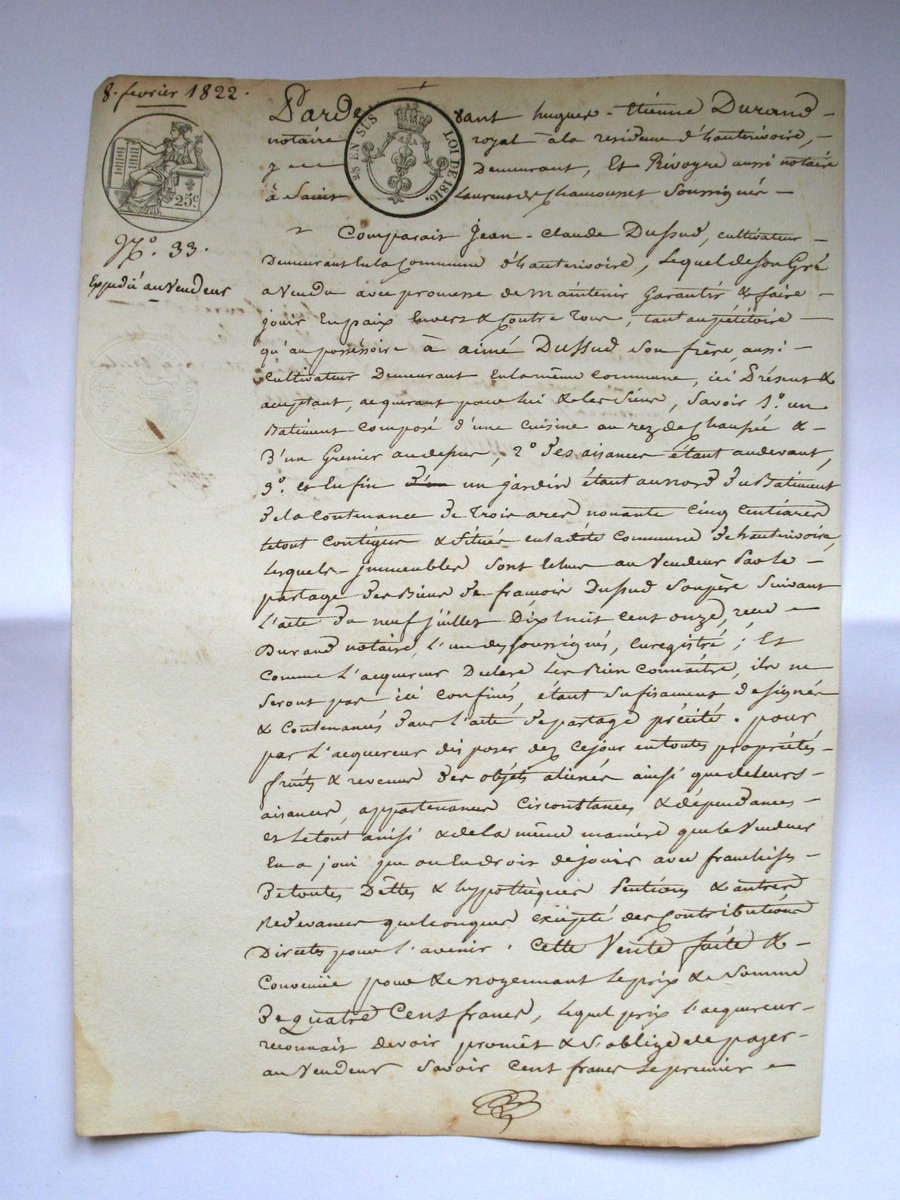 8. fevrier 1822.
25c
25 EN SUS LOI DE 1816.
N.º 33.
Expedié au Vendeur
Pardevant hugues-Etienne Durand
notaire royal à la residence d'hauterivoire,
y demeurant, Et Rivoyre aussi notaire
à Saint Laurent de Chamousset Soussignés
Comparait Jean-Claude Dussud, cultivateur
Demeurant En la Commune d'hauterivoire, Lequel de son Gré
a Vendu avec promesse de maintenir Garantir & faire
jouir En paix Envers & Contre Tous, tant au pétitoire
qu'au possessoire à aimé Dussud son frère, aussi
Cultivateur Demeurant En la même Commune, ici Présent &
acceptant, acquerant pour lui & les Siens, Savoir 1.º un
Batiment Composé d'une Cuisine au rez de Chaussée &
D'un Grenier au dessus, 2º des aisances étant au devant,
3º. et Enfin un jardin étant au nord du Batiment
De la Contenance De Trois ares nonante Cinq Centiares
le tout Contigus & Situés en la dite Commune De hauterivoire,
Lesquels immeubles sont Echus au Vendeur Par le
partage des Biens De francois Dussud Son père Suivant
l'acte du neuf juillet Dix huit cent onze, reçu
Durand notaire, l'un des Soussignés, Enregistré; Et
Comme l'acquereur Declare les Bien Connaitre, ils ne
Seront pas ici Confinés, étant Sufisament Designés
& Contenancés Dans l'acte De partage précité. pour
par L'acquereur disposer dez Cejour en toutes propriétés
fruits & revenus des objets alienés ainsi que de leurs
aisances, appartenances Circonstances & dépendances
et le tout ainsi & de la même manière que le Vendeur
En a joui ou En droit de jouir avec franchises
De toutes Dêttes & hypothèques Pentions & autres
Redevances quelconques excepté des Contributions
Directes pour l'avenir. Cette Vente faite &
Convenue pour & moyennant le prix & Somme
De Quatre Cent francs, lequel prix l'acquereur
reconnait devoir promet & S'oblige de payer
au Vendeur Savoir Cent francs le premier